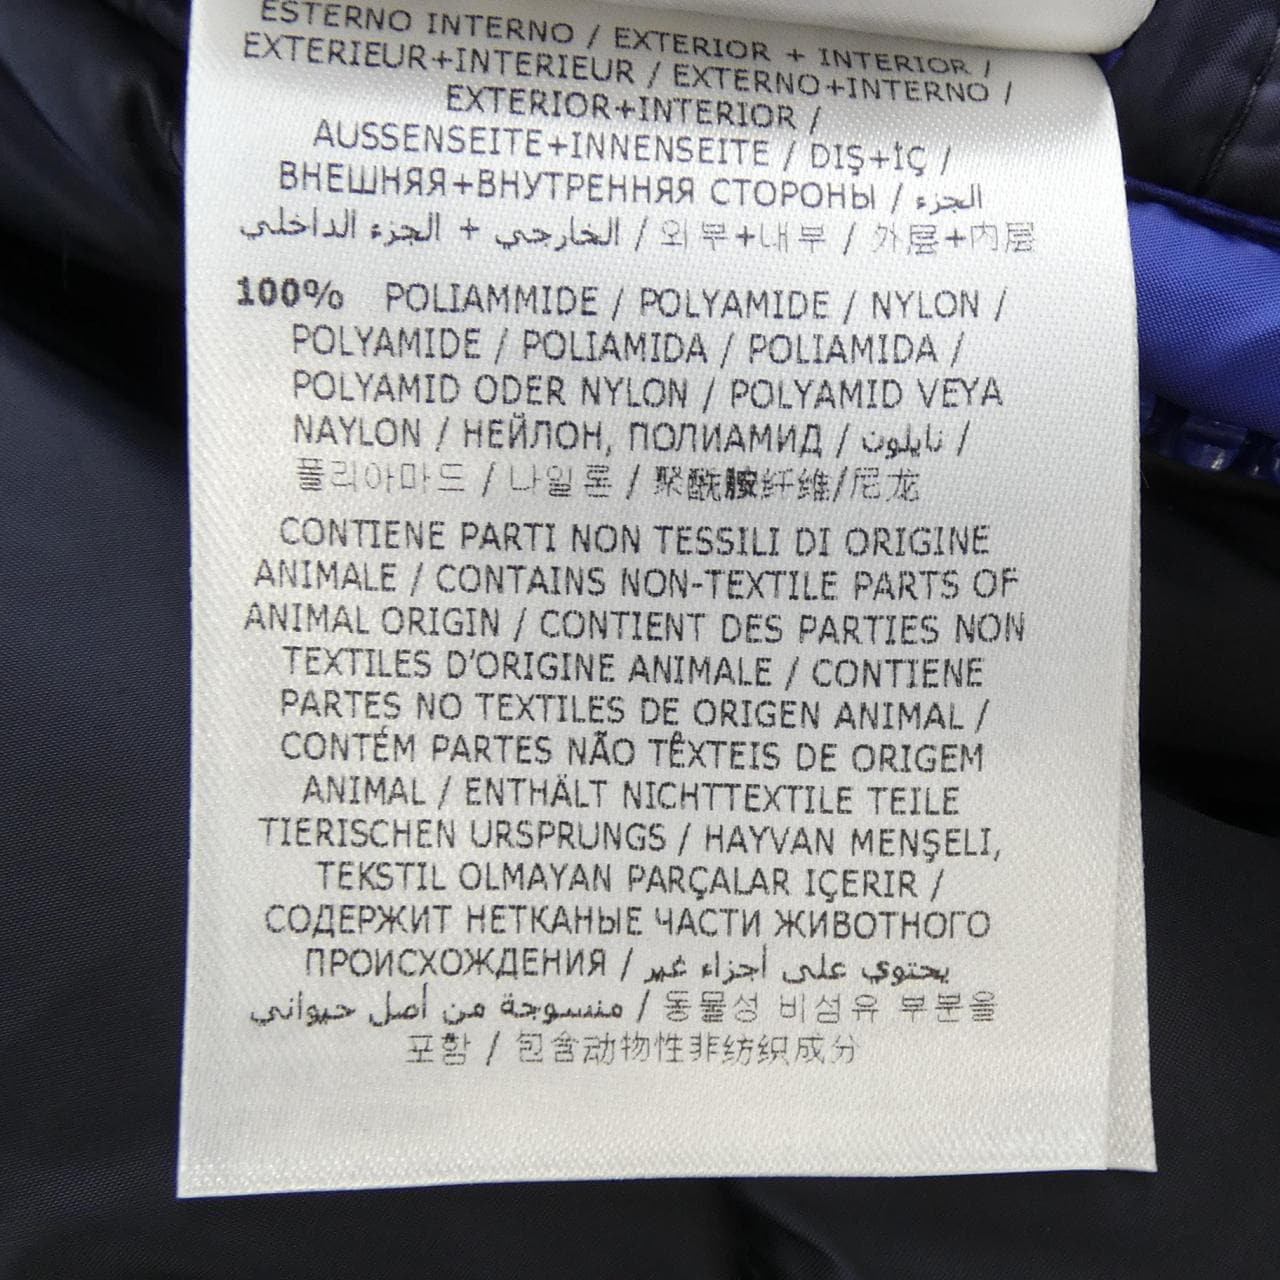 ESTERNO INTERNO / EXTERIOR + INTERIOR /
EXTERIEUR+INTERIEUR / EXTERNO+INTERNO /
EXTERIOR+INTERIOR /
AUSSENSEITE+INNENSEITE / DIŞ+İÇ /
ВНЕШНЯЯ+ВНУТРЕННЯЯ СТОРОНЫ / الجزء
الخارجي + الجزء الداخلي / 외부+내부 / 外层+内层
100% POLIAMMIDE / POLYAMIDE / NYLON /
POLYAMIDE / POLIAMIDA / POLIAMIDA /
POLYAMID ODER NYLON / POLYAMID VEYA
NAYLON / НЕЙЛОН, ПОЛИАМИД / نايلون /
폴리아마드 / 나일론 / 聚酰胺纤维/尼龙
CONTIENE PARTI NON TESSILI DI ORIGINE
ANIMALE / CONTAINS NON-TEXTILE PARTS OF
ANIMAL ORIGIN / CONTIENT DES PARTIES NON
TEXTILES D'ORIGINE ANIMALE / CONTIENE
PARTES NO TEXTILES DE ORIGEN ANIMAL /
CONTÉM PARTES NÃO TÊXTEIS DE ORIGEM
ANIMAL / ENTHÄLT NICHTTEXTILE TEILE
TIERISCHEN URSPRUNGS / HAYVAN MENŞELI,
TEKSTIL OLMAYAN PARÇALAR IÇERIR /
СОДЕРЖИТ НЕТКАНЫЕ ЧАСТИ ЖИВОТНОГО
ПРОИСХОЖДЕНИЯ / يحتوي على أجزاء غير
منسوجة من أصل حيواني / 동물성 비섬유 부분을
포함 / 包含动物性非纺织成分